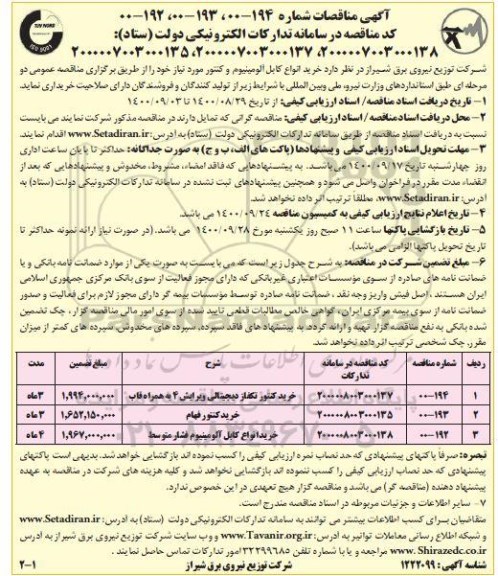 آگهی مناقصات شماره ۱۹۴-۰۰، ۱۹۳-۰۰، ۱۹۲-۰۰
کد مناقصه در سامانه تدارکات الکترونیکی دولت (ستاد):
۲۰۰۰۰۰۷۰۰۳۰۰۰۱۳۸، ۲۰۰۰۰۰۷۰۰۳۰۰۰۱۳۷، ۲۰۰۰۰۰۷۰۰۳۰۰۰۱۳۵
شرکت توزیع نیروی برق شیراز در نظر دارد خرید انواع کابل آلومینیوم و کنتور مورد نیاز خود را از طریق برگزاری مناقصه عمومی دو
مرحله ای طبق استانداردهای وزارت نیرو، ملی وبین المللی با شرایط زیر از تولید کنندگان و فروشندگان دارای صلاحیت خریداری نماید.
۱- تاریخ دریافت اسناد مناقصه/ اسناد ارزیابی کیفی: از تاریخ ۱۴۰۰/۰۸/۲۹ تا ۱۴۰۰/۰۹/۰۳
۲- محل دریافت اسناد مناقصه/ اسناد ارزیابی کیفی: مناقصه گرانی که تمایل دارند در مناقصه مذکور شرکت نمایند می بایست
نسبت به دریافت اسناد مناقصه از طریق سامانه تدارکات الکترونیکی دولت (ستاد) به آدرس: www.Setadiran.ir اقدام نمایند.
۳- مهلت تحویل اسناد ارزیابی کیفی و پیشنهادها (پاکت های الف، ب و ج) به صورت جداگانه: حداکثر تا پایان ساعت اداری
روز چهارشنبه تاریخ ۱۴۰۰/۰۹/۱۷ می باشد. به پیشنهادهایی که فاقد امضاء، مشروط، مخدوش و پیشنهادهایی که بعد از
انقضاء مدت مقرر در فراخوان واصل می شود و همچنین پیشنهادهای ثبت نشده در سامانه تدارکات الکترونیکی دولت (ستاد) به
آدرس: www.Setadiran.ir، مطلقا ترتیب اثر داده نخواهد شد.
۴- تاریخ اعلام نتایج ارزیابی کیفی به کمیسیون مناقصه ۱۴۰۰/۰۹/۲۴ می باشد.
۵- تاریخ بازگشایی پاکتها ساعت ۱۱ صبح روز یکشنبه مورخ ۱۴۰۰/۰۹/۲۸ می باشد. (در صورت نیاز ارائه نمونه حداکثر تا
تاریخ تحویل پاکتها الزامی می باشد).
۶- مبلغ تضمین شرکت در مناقصه: به شرح جدول زیر است که می بایست به صورت یکی از موارد ضمانت نامه بانکی و یا
ضمانت نامه های صادره از سوی مؤسسات اعتباری غیربانکی که دارای مجوز فعالیت از سوی بانک مرکزی جمهوری اسلامی
ایران هستند، اصل فیش واریز وجه نقد، ضمانت نامه صادره توسط مؤسسات بیمه گر دارای مجوز لازم برای فعالیت و صدور
ضمانت نامه از سوی بیمه مرکزی ایران، گواهی خالص مطالبات قطعی تایید شده از سوی امور مالی مناقصه گزار، چک تضمین
شده بانکی به نفع مناقصه گزار تهیه و ارائه گردد. به پیشنهاد های فاقد سپرده، سپرده های مخدوش، سپرده های کمتر از میزان
مقرر، چک شخصی ترتیب اثر داده نخواهد شد.
ردیف شماره مناقصه کد مناقصه در سامانه تدارکات شرح مبلغ تضمین مدت
۱ ۰۰-۱۹۴ ۲۰۰۰۰۰۸۰۰۳۰۰۰۱۳۷ خرید کنتور تکفاز دیجیتالی ویرایش ۴ به همراه قاب ۱,۹۹۴,۰۰۰,۰۰۰ ۳ ماه
۲ ۰۰-۱۹۳ ۲۰۰۰۰۰۸۰۰۳۰۰۰۱۳۵ خرید کنتور فهام ۱,۶۵۲,۱۵۰,۰۰۰ ۳ ماه
۳ ۰۰-۱۹۲ ۲۰۰۰۰۰۸۰۰۳۰۰۰۱۳۸ خرید انواع کابل آلومینیوم فشار متوسط ۱,۹۶۷,۰۰۰,۰۰۰ ۴ ماه
تبصره: صرفا پاکتهای پیشنهادی که حد نصاب نمره ارزیابی کیفی را کسب نموده اند بازگشایی خواهد شد. بدیهی است پاکتهای
پیشنهادی که حد نصاب ارزیابی کیفی را کسب ننموده اند بازگشایی نخواهد شد و کلیه هزینه های شرکت در مناقصه به عهده
پیشنهاد دهنده (مناقصه گر) می باشد و مناقصه گزار هیچ تعهدی در این خصوص ندارد.
۷- سایر اطلاعات و جزئیات مربوطه در اسناد مناقصه مندرج است.
متقاضیان برای کسب اطلاعات بیشتر می توانند به سامانه تدارکات الکترونیکی دولت (ستاد) به آدرس: www.Setadiran.ir
و شبکه اطلاع رسانی معاملات توانیر به آدرس: www.Tavanir.org.ir و وب سایت شرکت توزیع نیروی برق شیراز به آدرس
www.Shirazedc.co.ir مراجعه و یا با شماره تلفن ۳۲۲۹۹۶۸۵ امور تدارکات تماس حاصل نمایند.
شناسه آگهی: ۱۲۲۲۰۹۹ شرکت توزیع نیروی برق شیراز ۲-۱